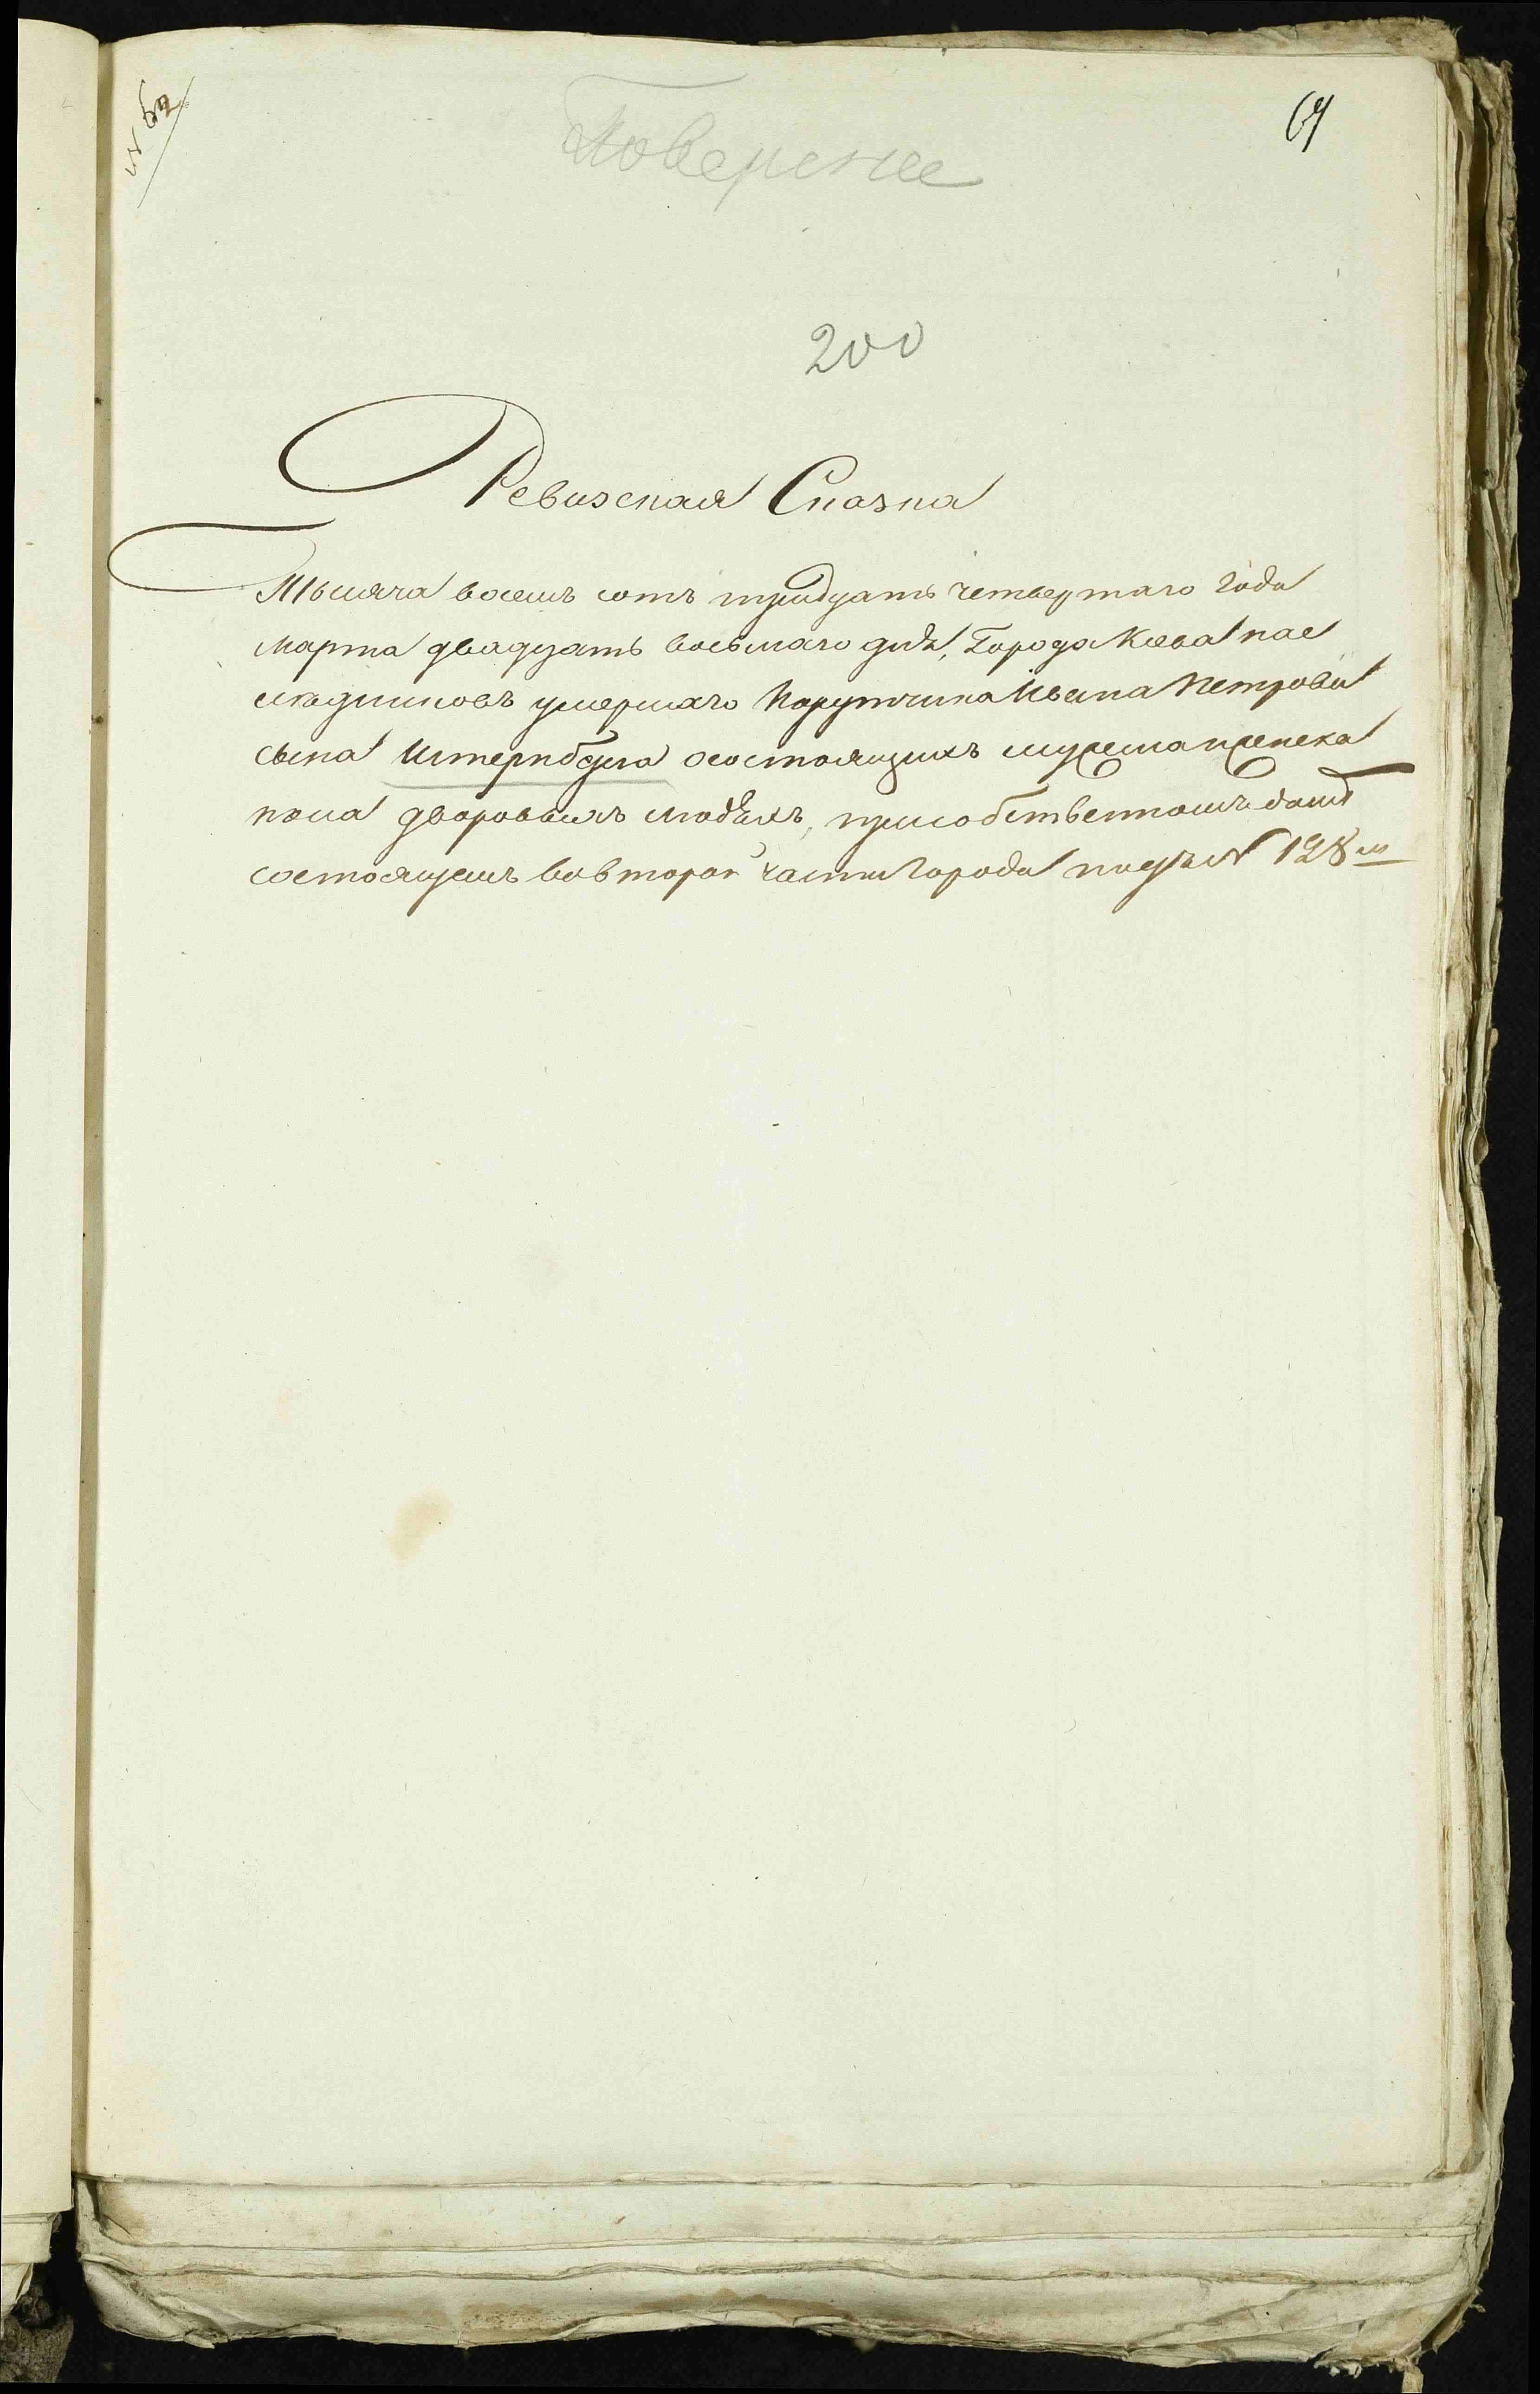 № 62
64
Поверение
200
Ревизская Сказка
Тысяча восемь сотъ тридцать четвертаго года
Марта двадцать восьмаго дня, Города Кіева нас
лѣдниковъ умершаго Порутчика Ивана Петрова
сына осостоящихъ мужеска иженска
пола дворовыхъ людѣхъ, присобственномъ домѣ
состоящемъ вовторой части города подъ № 128м